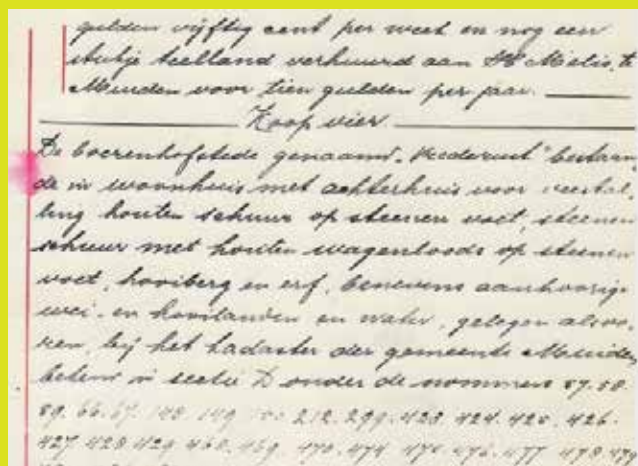 gulden vijftig cent per week en nog een
stukje teelland verhuurd aan H Melis te
Muiden voor tien gulden per jaar.
Koop vier.
De boerenhofstede genaamd "Vrederust" bestaan
de in woonhuis met achterhuis voor veestal
ling houten schuur op steenen voet, steenen
schuur met houten wagenloods op steenen
voet, hooiberg en erf, benevens aanhoorige
wei- en hooilanden en water, gelegen alvo
ren, bij het kadaster der gemeente Muiden
bekend in sectie D onder de nommers 57. 58.
59. 66. 67. 148. 149 150 212. 299. 423 424. 425. 426.
427. 428 429 468. 469. 470. 474 475 476. 477 478. 479